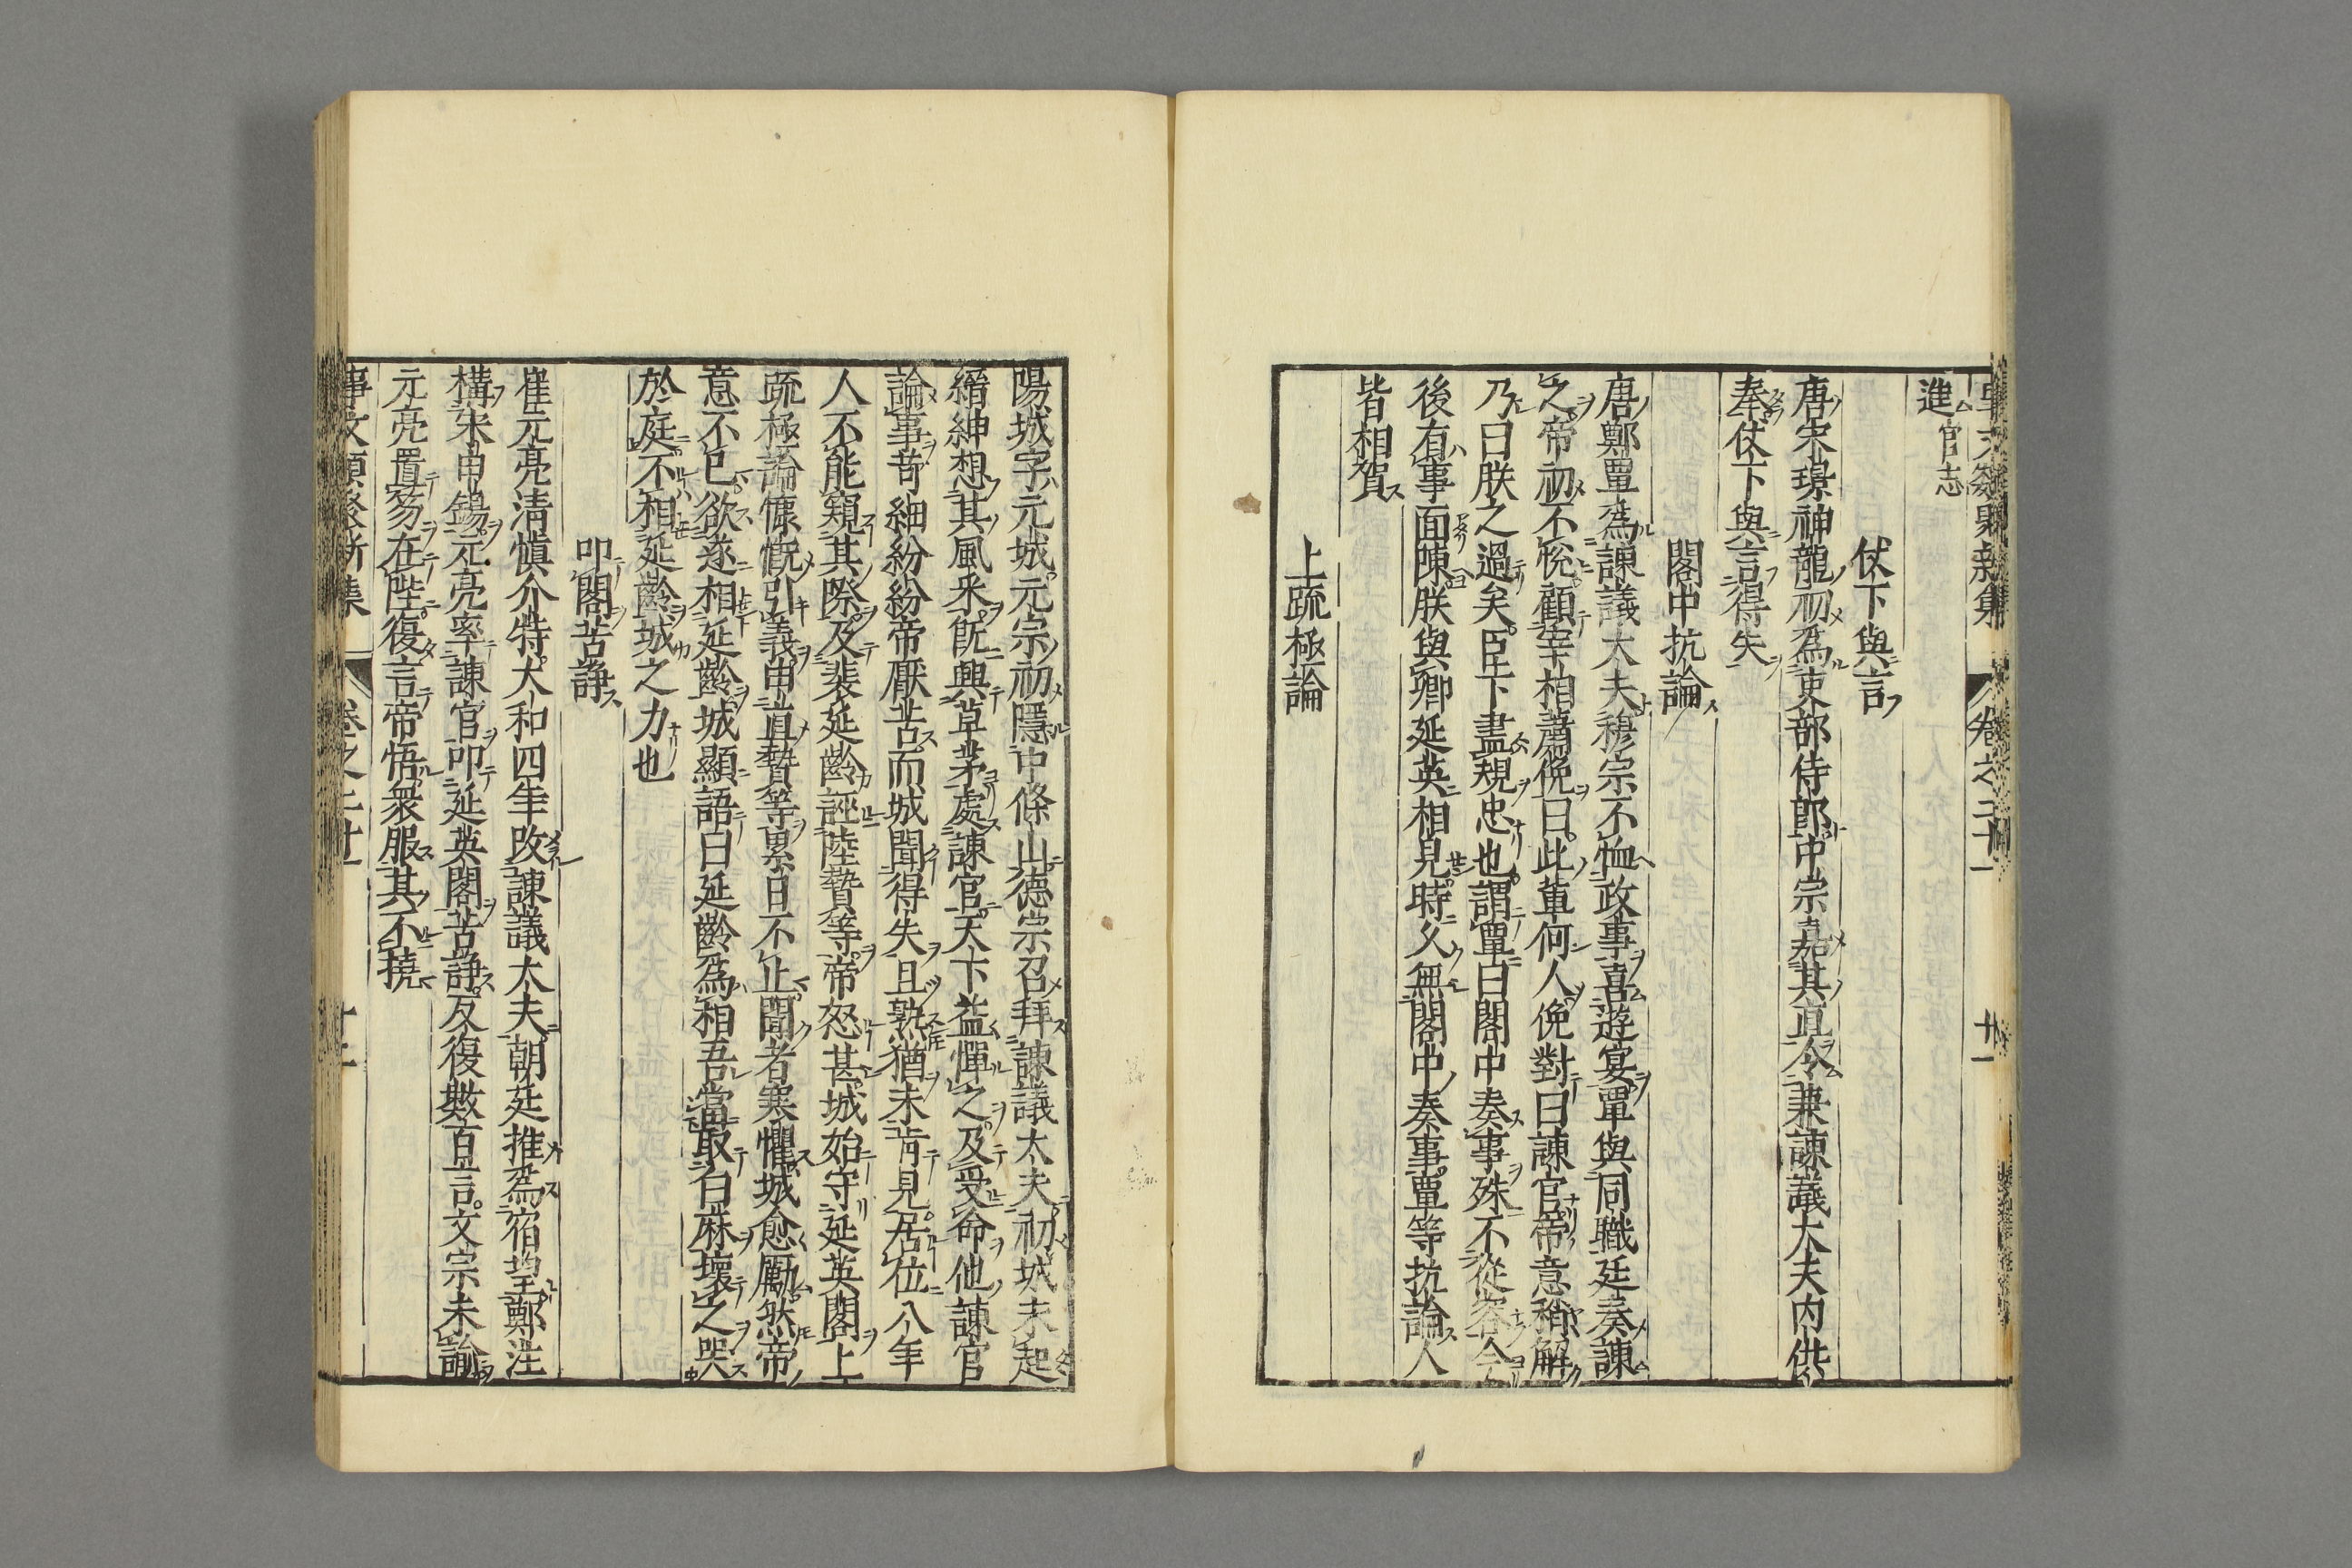 進官志
仗下與言
唐宋璟神龍初爲吏部侍郎中宗嘉其直令兼諫議大夫内供
奉仗下與言得失
閣中抗論
唐鄭覃爲諫議大夫穆宗不恤政事喜遊宴覃與同職廷奏諫
之帝初不悅顧宰相蕭俛曰此輩何人俛對曰諫官帝意稍解
乃曰朕之過矣臣下盡規忠也謂覃曰閣中奏事殊不從容今
後有事面陳朕與卿延英相見時久無閣中奏事覃等抗論人
皆相賀
上疏極論
陽城字元城元宗初隱中條山德宗召拜諫議大夫初城未起
縉紳想其風采旣興草茅處諫官天下益憚之及受命他諫官
論事苛細紛紛帝厭苦而城聞得失且熟猶未肯見居位八年
人不能窺其際及裴延齡誣陸贄等帝怒甚城始守延英閣上
疏極論慷慨引義申直贄等累日不止聞者寒懼城愈勵然帝
意不已欲遂相延齡城顯語曰延齡爲相吾當取白麻壞之哭
於庭不相延齡城之力也
叩閣苦諍
崔元亮淸愼介特大和四年改諫議大夫朝廷推爲宿望鄭注
構宋申錫元亮率諫官叩延英閣苦諍反復數百言文宗未諭
元亮置笏在陛復言帝悟衆服其不撓
事文類聚新集 卷之二十一